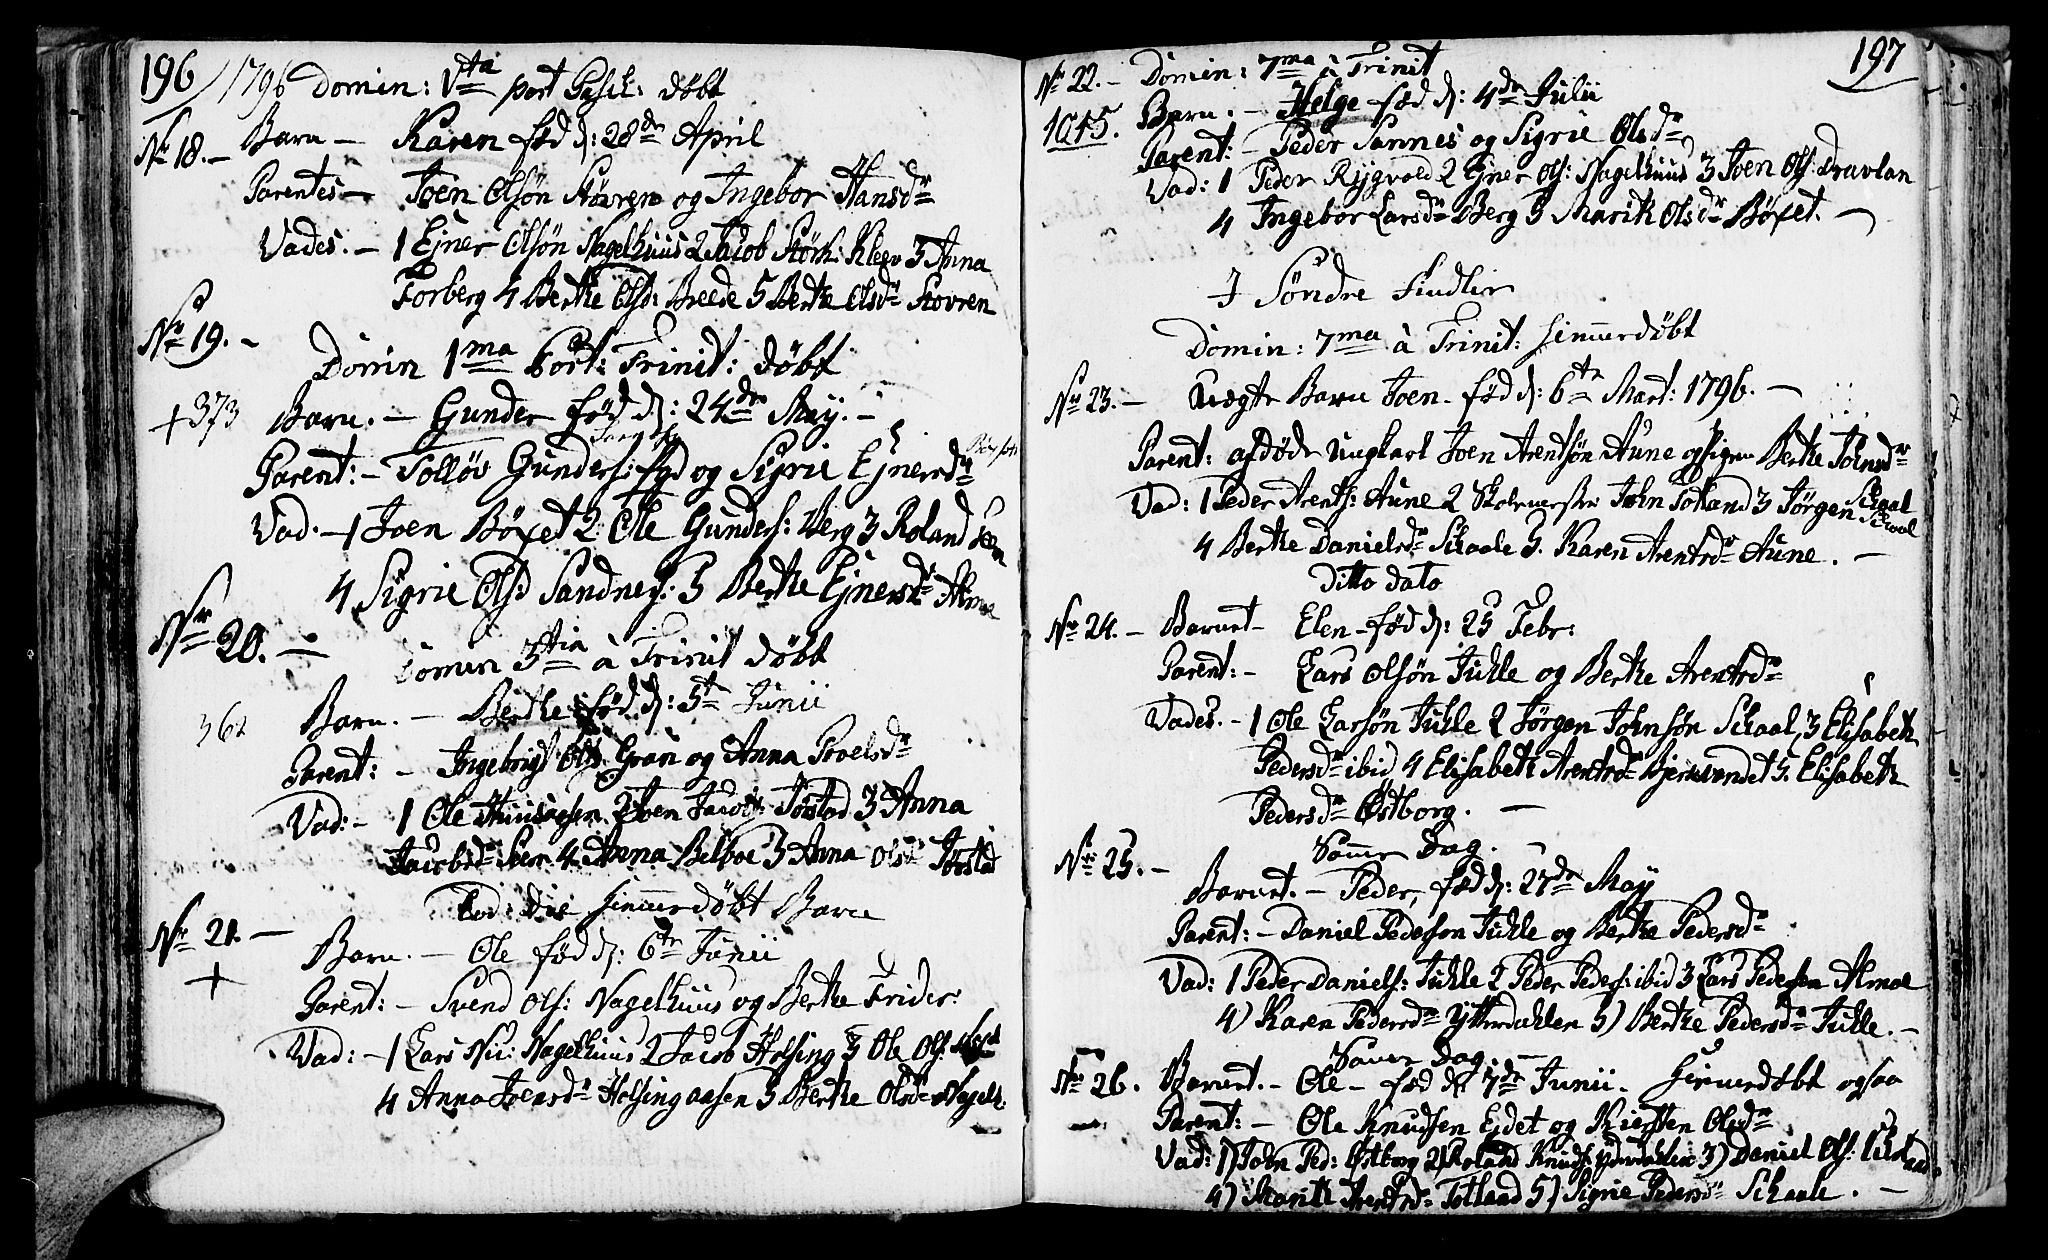 196 1796 Domin: Vta post Pasch: døbt
No 18. - Barn - Karen fød d: 28de April
Parentes - Joen Olsøn Støvren og Ingebor Hansdr
Vades. - 1 Ejner Olsøn Nagelhuus 2 Jacob Størk: Kleev 3 Anna
Forberg 4 Berthe Olsd: Breede 5 Berthe Olsdr Støvren
No 19. -
Domin 1ma Post: Trinit: døbt
+373 Barn. - Gunder fød d: 24de May. -
Parent: - Tolløv Gunders: og Sigrie Ejnersdr
Vad. - 1 Joen Bøxet 2 Ole Gunders: Berg 3 Roland Seem
4 Sigrie Olsd Sandnes: 5 Berthe Ejnersdr Almoe
Nr 20. -
Domin 3tia à Trinit døbt
362 Barn. - Berthe fød d: 5te Junii
Parent: - Ingebrigt Ols: Gran og Anna Poelsdr
Vad: - 1 Ole 2 Joen Jacobs: Jørstad 3 Anna
Jacobsdr Seem 4 Anna Belboe 5 Anna Olsdr Jørstad
Eod: die hiemmedøbt Barn
Nr 21. - Barn. - Ole fød d: 6te Junii
+
Parent: - Svend Ols: Nagelhuus og Berthe Frider:
Vad: - 1 Lars Nic: Nagelhuus 2 Jacob Holsing 3 Ole Ols:
4 Anna Joensdr Holsingaasen 5 Berthe Olsdr Nagelh:
197
No 22. - Domin: 7ma à Trinit
1015. Barn. - Helge fød d: 4de Julii
Parent: - Peder Sannes og Sigrie Olsdr
Vad: 1 Peder Rygvold 2 Ejner Ols: Nagelhuus 3 Joen Ols: Dravlan
4 Ingebor Larsdr Berg 5 Marit Olsdr Bøxet. -
I Søndre Findlie
Domin: 7ma à Trinit: hiemmedøbt
No 23. - Uægte Barn Joen - fød d: 6te Mart: 1796. -
Parent: afdøde ungkarl Joen Arentsøn Aune og Pigen Berthe Johnsdr
Vad: 1 Peder Arents: Aune 2 Skolemester John Totland 3 Jørgen Schaal
Schaal
4 Berthe Danielsdr Schaale 5. Karen Arentsdr Aune. -
Ditto dato
No 24. - Barnet - Elen - fød d: 25 Febr:
Parent: - Lars Olsøn Juhle og Berthe Arentsdr
Vades. - 1 Ole Larsøn Juhle 2 Jørgen Johnsøn Schaal, 3 Elisabeth
Pedersdr ibid 4 Elisabeth Arentsdr Bjerkvendet 5. Elisabeth
Pedersdr Østborg. -
Samme Dag.
No 25. - Barnet. - Peder, fød d: 27de May
Parent: - Daniel Pedersøn Juhle og Berthe Pedersdr
Vad: 1 Peder Daniels: Juhle 2 Peder Peders: ibid 3 Lars Pedersen Almoe
4) Karen Pedersdr Ytterdahlen 5) Berthe Pedersdr Juhle. -
Samme Dag. -
No 26. Barnet. - Ole - fød d: 7de Junii - hiemmedøbt ogsaa
Parent: - Ole Knudsen Eidet og Kiersten Olsdr
Vad: 1) John Ped: Østborg 2) Roland Knuds: Ytterdahlen 3) Daniel Ols:
4) Marith Arentsdr Totland 5) Sigrie Pedersdr Schaale. -